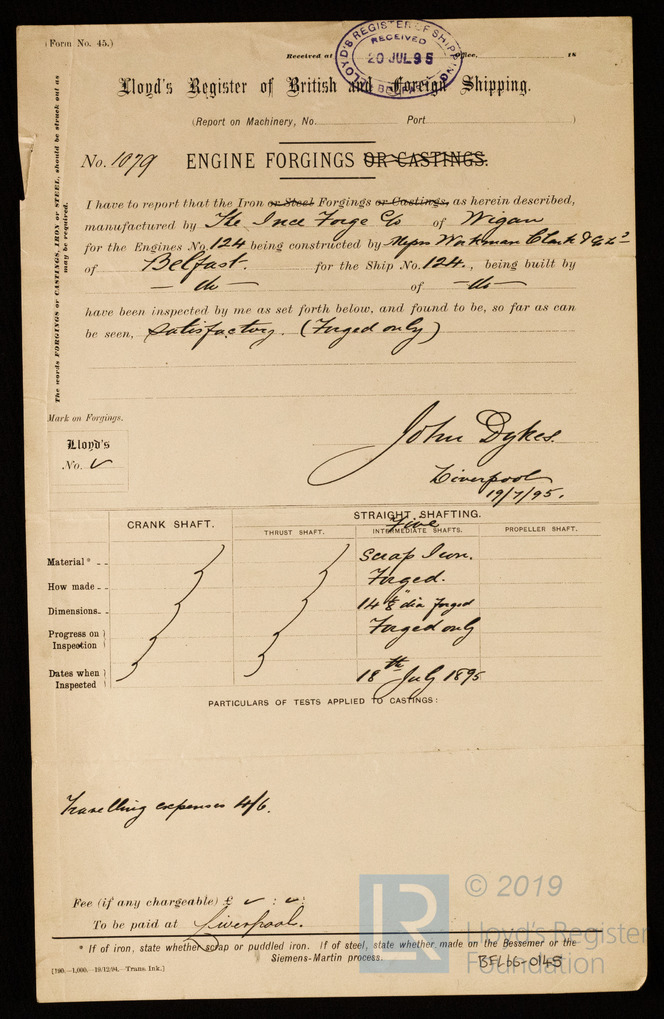 (Form No. 45.)
LLOYD'S REGISTER OF SHIPPING
RECEIVED
20 JUL 95
BELFAST
Received at Office, 18
Lloyd's Register of British and Foreign Shipping.
(Report on Machinery, No. Port )
No. 1079 ENGINE FORGINGS OR CASTINGS.
The words FORGINGS or CASTINGS, IRON or STEEL, should be struck out as may be required.
I have to report that the Iron or Steel Forgings or Castings, as herein described,
manufactured by The Ince Forge Co of Wigan
for the Engines No. 124 being constructed by Messrs Workman Clark & Co Ld
of Belfast. for the Ship No. 124., being built by
— do — of — do —
have been inspected by me as set forth below, and found to be, so far as can
be seen, Satisfactory. (Forged only)
Mark on Forgings.
Lloyd's
No. ✓
John Dykes.
Liverpool
19/7/95.
CRANK SHAFT. STRAIGHT SHAFTING.
Five
THRUST SHAFT. INTERMEDIATE SHAFTS. PROPELLER SHAFT.
Material* Scrap Iron.
How made Forged.
Dimensions 14 dia forged
Progress on Inspection Forged only
Dates when Inspected 18th July 1895
PARTICULARS OF TESTS APPLIED TO CASTINGS:
Travelling expenses 4/6.
Fee (if any chargeable) £ ✓ : ✓ :
To be paid at Liverpool.
* If of iron, state whether scrap or puddled iron. If of steel, state whether made on the Bessemer or the
Siemens-Martin process.
[190.—1,000.—19/12/94.—Trans. Ink.]
BFL66-0145
LR
© 2019
Lloyd's Register
Foundation